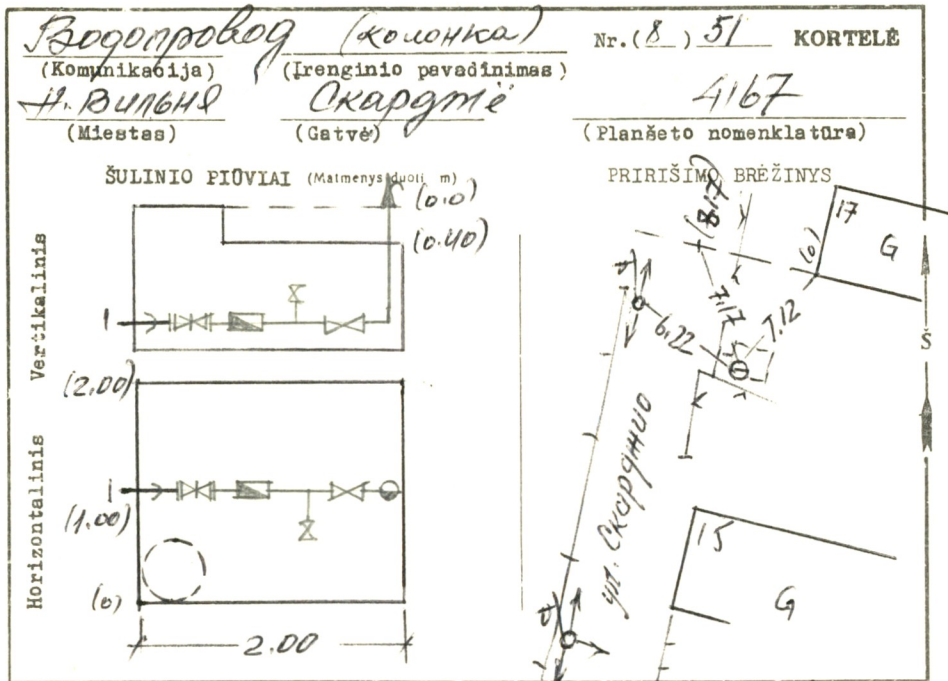 Водопровод (колонка) Nr.(8) 51 KORTELĖ
(Komunikacija) (Įrenginio pavadinimas)
Н. Вильня Скарджё 4167
(Miestas) (Gatvė) (Planšeto nomenklatūra)
ŠULINIO PIŪVIAI (Matmenys duoti m) PRIRIŠIMO BRĖŽINYS
Vertikalinis
(0.0)
(0.40)
I
Horizontalinis
(2.00)
I
(1.00)
(0)
2.00
(8.17)
(0)
17
G
7.17
7.12
6.22
ул. Скарджио
15
G
Š